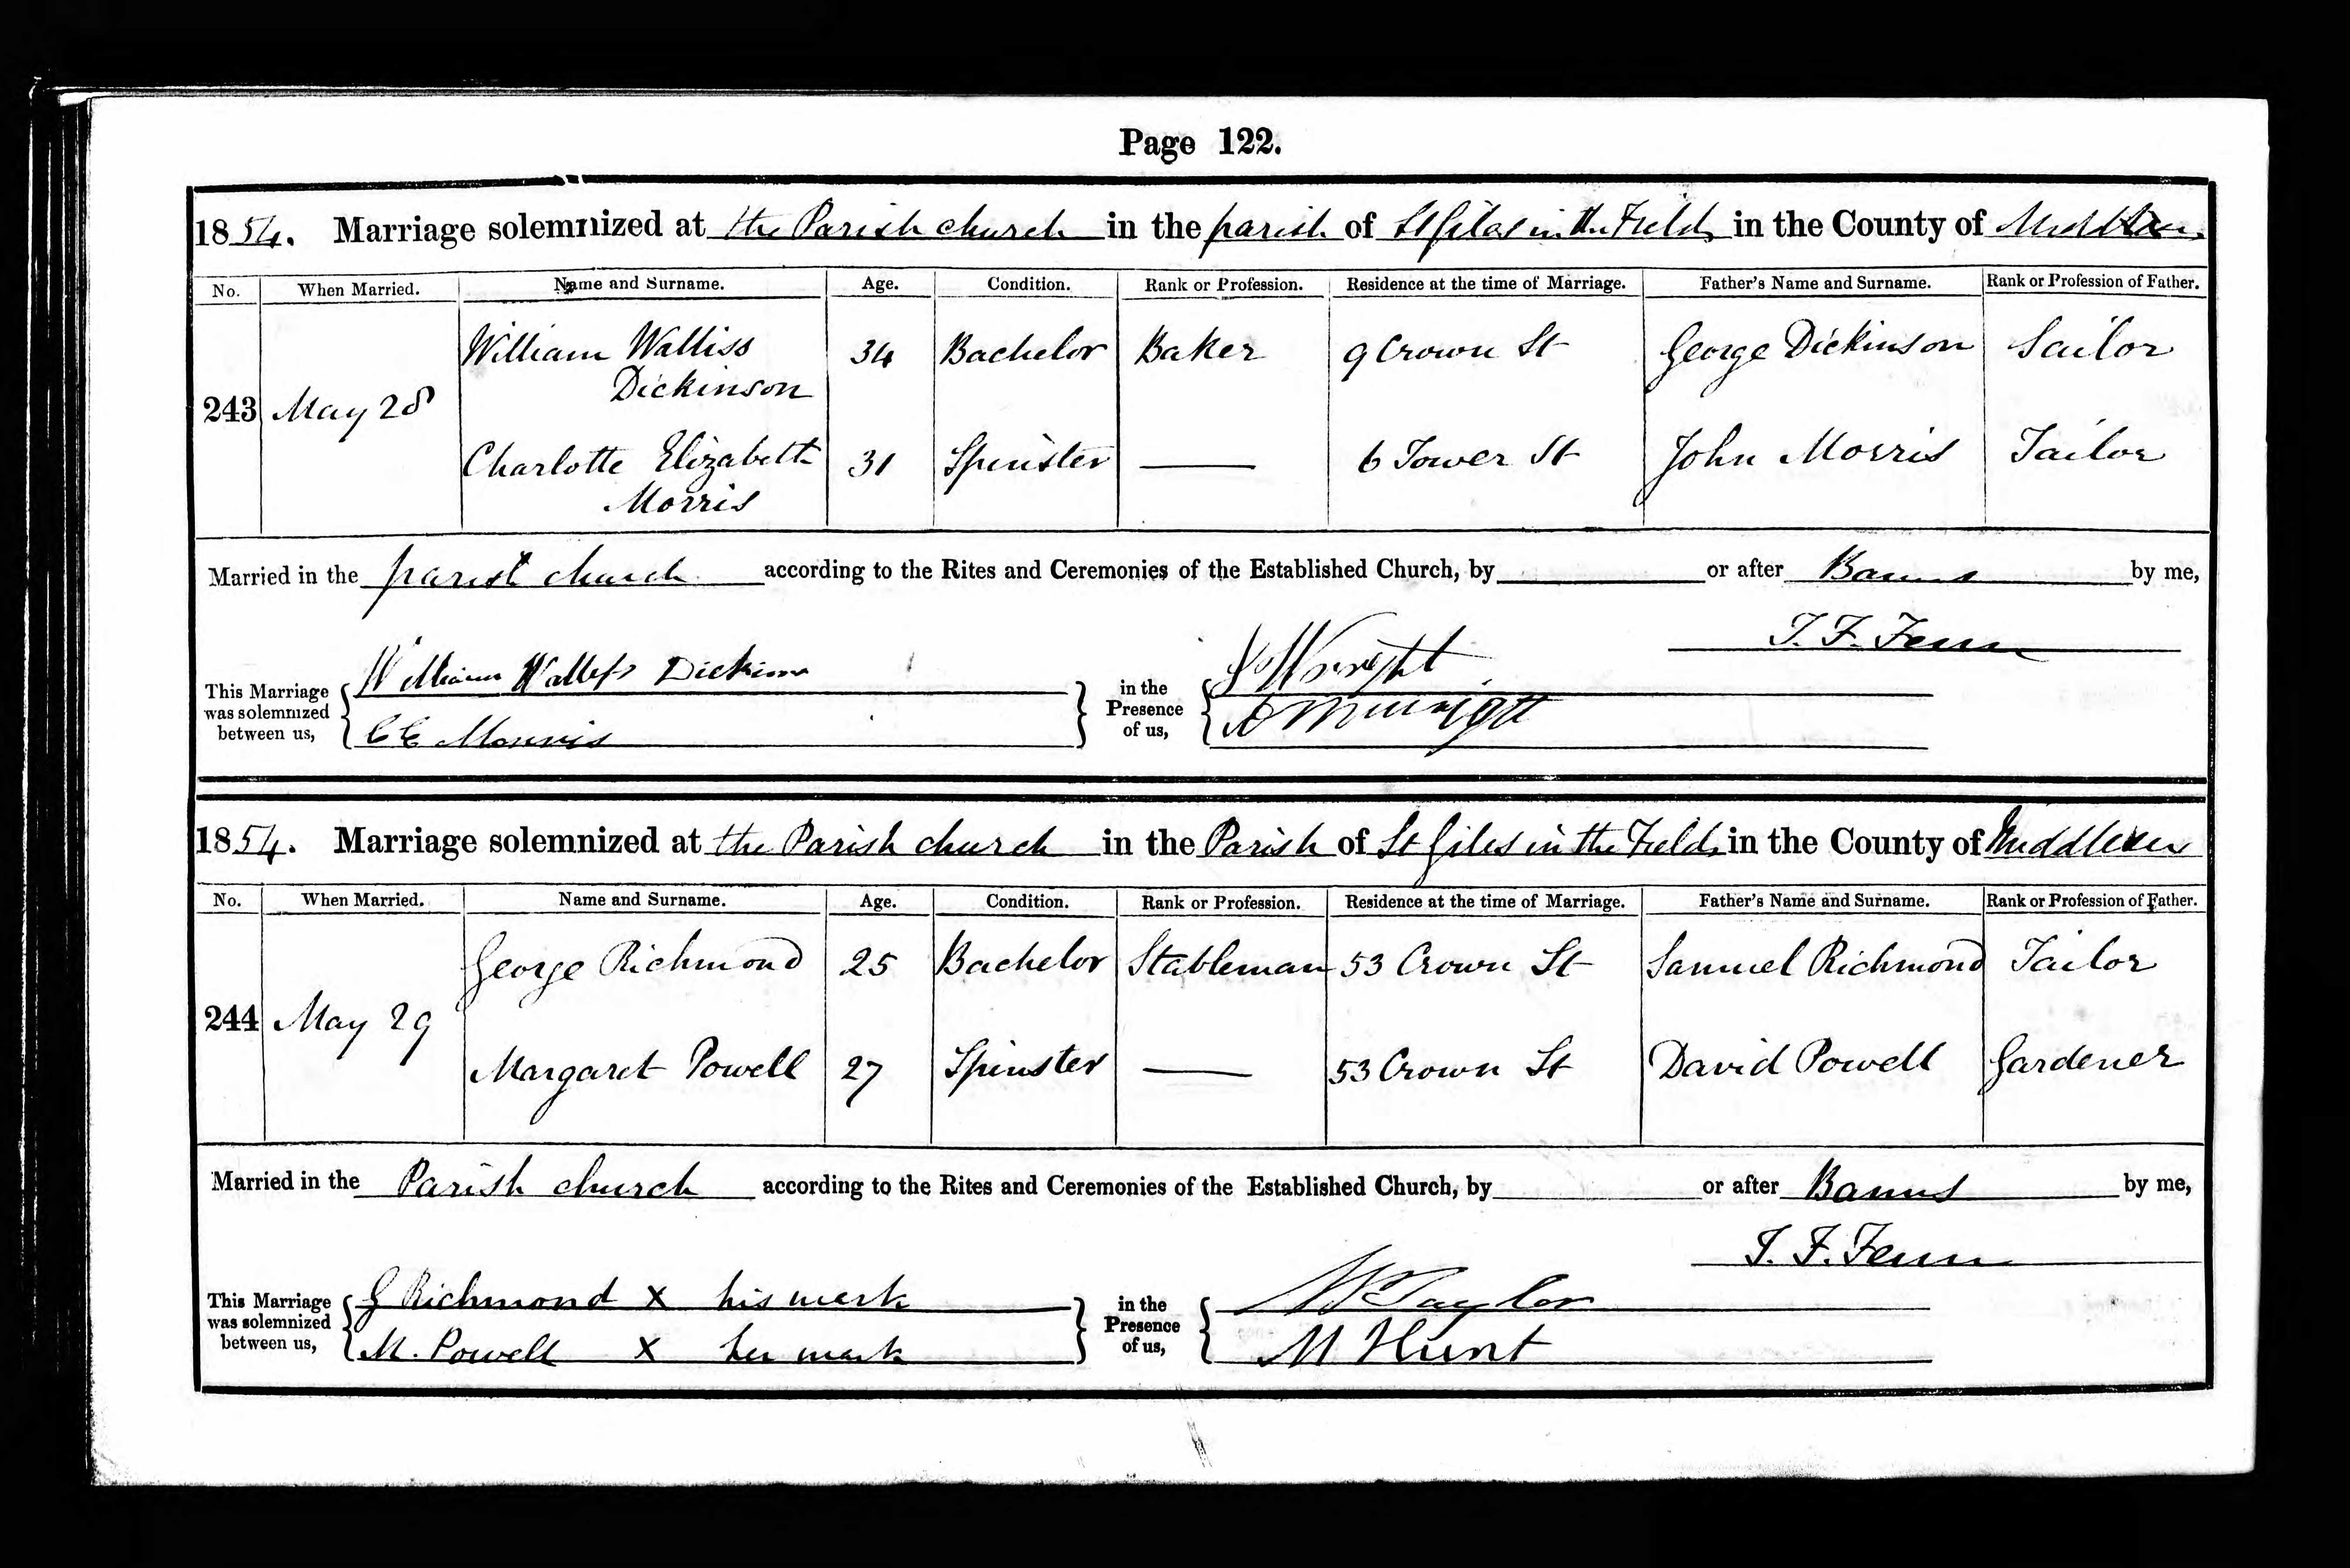 Page 122.
1854. Marriage solemnized at the Parish church in the parish of St Giles in the Fields in the County of Middlesex
No. When Married. Name and Surname. Age. Condition. Rank or Profession. Residence at the time of Marriage. Father's Name and Surname. Rank or Profession of Father.
William Walliss 34 Bachelor Baker 9 Crown St George Dickinson Sailor
Dickinson
243 May 28
Charlotte Elizabeth 31 Spinster — 6 Tower St John Morris Tailor
Morris
Married in the parish church according to the Rites and Ceremonies of the Established Church, by or after Banns by me,
T. F. Fenn
This Marriage was solemnized between us, William Walliss Dickinson in the Presence of us, Wright
C E Morris
1854. Marriage solemnized at the Parish church in the Parish of St Giles in the Fields in the County of Middlesex
No. When Married. Name and Surname. Age. Condition. Rank or Profession. Residence at the time of Marriage. Father's Name and Surname. Rank or Profession of Father.
George Richmond 25 Bachelor Stableman 53 Crown St Samuel Richmond Tailor
244 May 29
Margaret Powell 27 Spinster — 53 Crown St David Powell Gardener
Married in the Parish church according to the Rites and Ceremonies of the Established Church, by or after Banns by me,
T. F. Fenn
This Marriage was solemnized between us, G Richmond X his mark in the Presence of us, W Taylor
M. Powell X her mark M Hunt